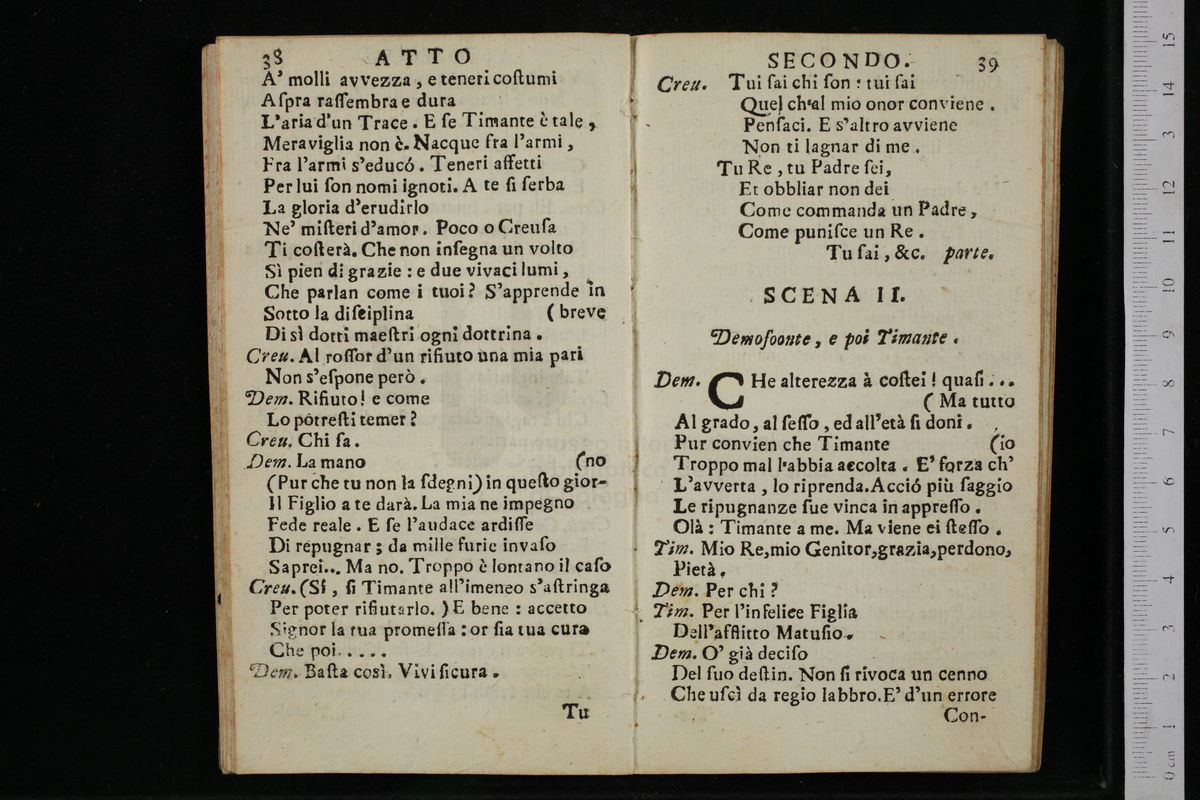 38 ATTO
A' molli avvezza, e teneri coſtumi
Aſpra raſſembra e dura
L'aria d'un Trace. E ſe Timante è tale,
Meraviglia non è. Nacque fra l'armi,
Fra l'armi s'educó. Teneri affetti
Per lui ſon nomi ignoti. A te ſi ſerba
La gloria d'erudirlo
Ne' miſteri d'amor. Poco o Creuſa
Ti coſterà. Che non inſegna un volto
Sì pien di grazie: e due vivaci lumi,
Che parlan come i tuoi? S'apprende in
Sotto la diſciplina (breve
Di sì dotti maeſtri ogni dottrina.
Creu. Al roſſor d'un rifiuto una mia pari
Non s'eſpone però.
Dem. Rifiuto! e come
Lo potreſti temer?
Creu. Chi ſa.
Dem. La mano (no
(Pur che tu non la ſdegni) in queſto gior-
Il Figlio a te darà. La mia ne impegno
Fede reale. E ſe l'audace ardiſſe
Di repugnar; da mille furie invaſo
Saprei... Ma no. Troppo è lontano il caſo
Creu. (Sí, ſi Timante all'imeneo s'aſtringa
Per poter rifiutarlo.) E bene: accetto
Signor la tua promeſſa: or ſia tua cura
Che poi.....
Dem. Baſta così. Vivi ſicura.
Tu
SECONDO. 39
Creu. Tu i ſai chi ſon: tu i ſai
Quel ch'al mio onor conviene.
Penſaci. E s'altro avviene
Non ti lagnar di me.
Tu Re, tu Padre ſei,
Et obbliar non dei
Come commanda un Padre,
Come puniſce un Re.
Tu ſai, &c. parte.
SCENA II.
Demofoonte, e poi Timante.
Dem. CHe alterezza à coſtei! quaſi...
(Ma tutto
Al grado, al ſeſſo, ed all'età ſi doni.
Pur convien che Timante (io
Troppo mal l'abbia accolta. E' forza ch'
L'avverta, lo riprenda. Acció più ſaggio
Le ripugnanze ſue vinca in appreſſo.
Olà: Timante a me. Ma viene ei ſteſſo.
Tim. Mio Re, mio Genitor, grazia, perdono,
Pietà.
Dem. Per chi?
Tim. Per l'infelice Figlia
Dell'afflitto Matuſio.
Dem. O' già deciſo
Del ſuo deſtin. Non ſi rivoca un cenno
Che uſcì da regio labbro. E' d'un errore
Con-
15
14
13
12
11
10
9
8
7
6
5
4
3
2
1
0 cm